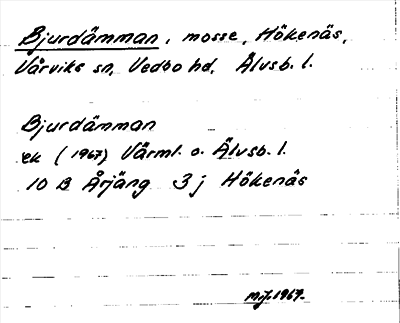 Bjurdämman, mosse, Hökenäs,
Vårviks sn, Vedbo hd, Älvsb. l.
Bjurdämman
ek (1967) Värml. o. Älvsb. l.
10 B Årjäng 3 j Hökenäs
1967